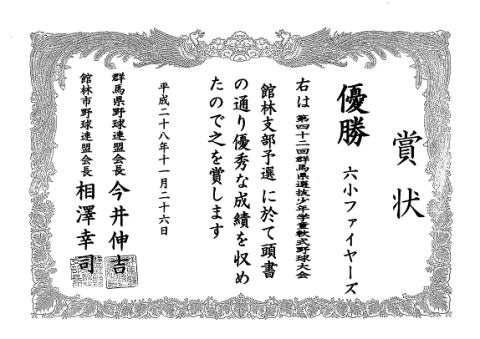 賞状
優勝 六小ファイヤーズ
右は第四十二回群馬県選抜少年学童軟式野球大会
館林支部予選に於て頭書
の通り優秀な成績を収め
たので之を賞します
平成二十八年十一月二十六日
群馬県野球連盟会長 今井伸吉
館林市野球連盟会長 相澤幸司